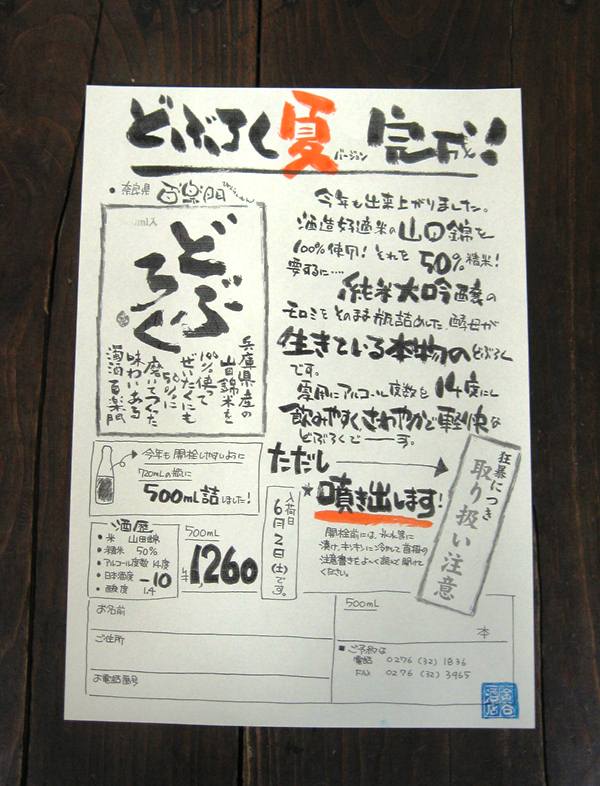 どぶろく夏バージョン 完成!
・奈良県 百楽門
今年も出来上がりました。
酒造好適米の山田錦を
100%使用!それを50%精米!
要するに…
純米大吟醸の
モロミをそのまま瓶詰めした、酵母が
生きている本物のどぶろく
です。
専用にアルコール度数を14度にし
飲みやすく、さわやかで軽快な
どぶろくでーーす。
どぶ
ろく
兵庫県産の
山田錦米を
100%使って
ぜいたくにも
50%に
磨いてつくった
味わいある
濁酒 百楽門
今年も開栓しやすいように
720mLの瓶に
500mL詰しました!
ただし
★噴き出します!
狂暴につき
取り扱い注意
開栓前には、氷水等に
漬け、キンキンに冷やして首掛の
注意書きをよ〜く読んで開けて
ください。
入荷日
6月2日(土)です。
酒度
・米 山田錦
・精米 50%
・アルコール度数 14度
・日本酒度 -10
・酸度 1.4
500mL
¥1260
お名前
ご住所
お電話番号
500mL
本
■ご予約は
電話 0276(32)1836
FAX 0276(32)3965